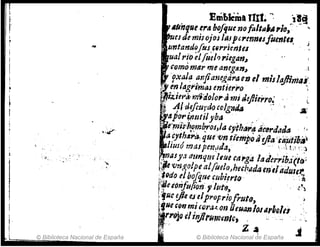 Emblema IIII. 189
y aunque era bosque no faltaba rio,
pues de mis ojos las perennes fuentes
juntando sus corrientes
qual rio el suelo riegan,
y como mar me anegan,
y oxala ansi anegara en el mis lastimas
y en lagrimas entierro
hiziera mi dolor a mi destierro.
Al descuydo colgada
ya por inutil yba
de mis hombros, la cythara acordada
la cythara, que vn tiempo a esta cautiba
aliuió mas penada,
mas ya aunque leue carga la derriba (to
de vn golpe al suelo, hechada en el aduer
todo el bosque cubierto
de confusion y luto,
que esse es el proprio fruto,
que con mi coraçon lleuan los arboles
rrojo el instrumento,
Z 2 al
© Biblioteca Nacional de España
© Biblioteca Nacional de España